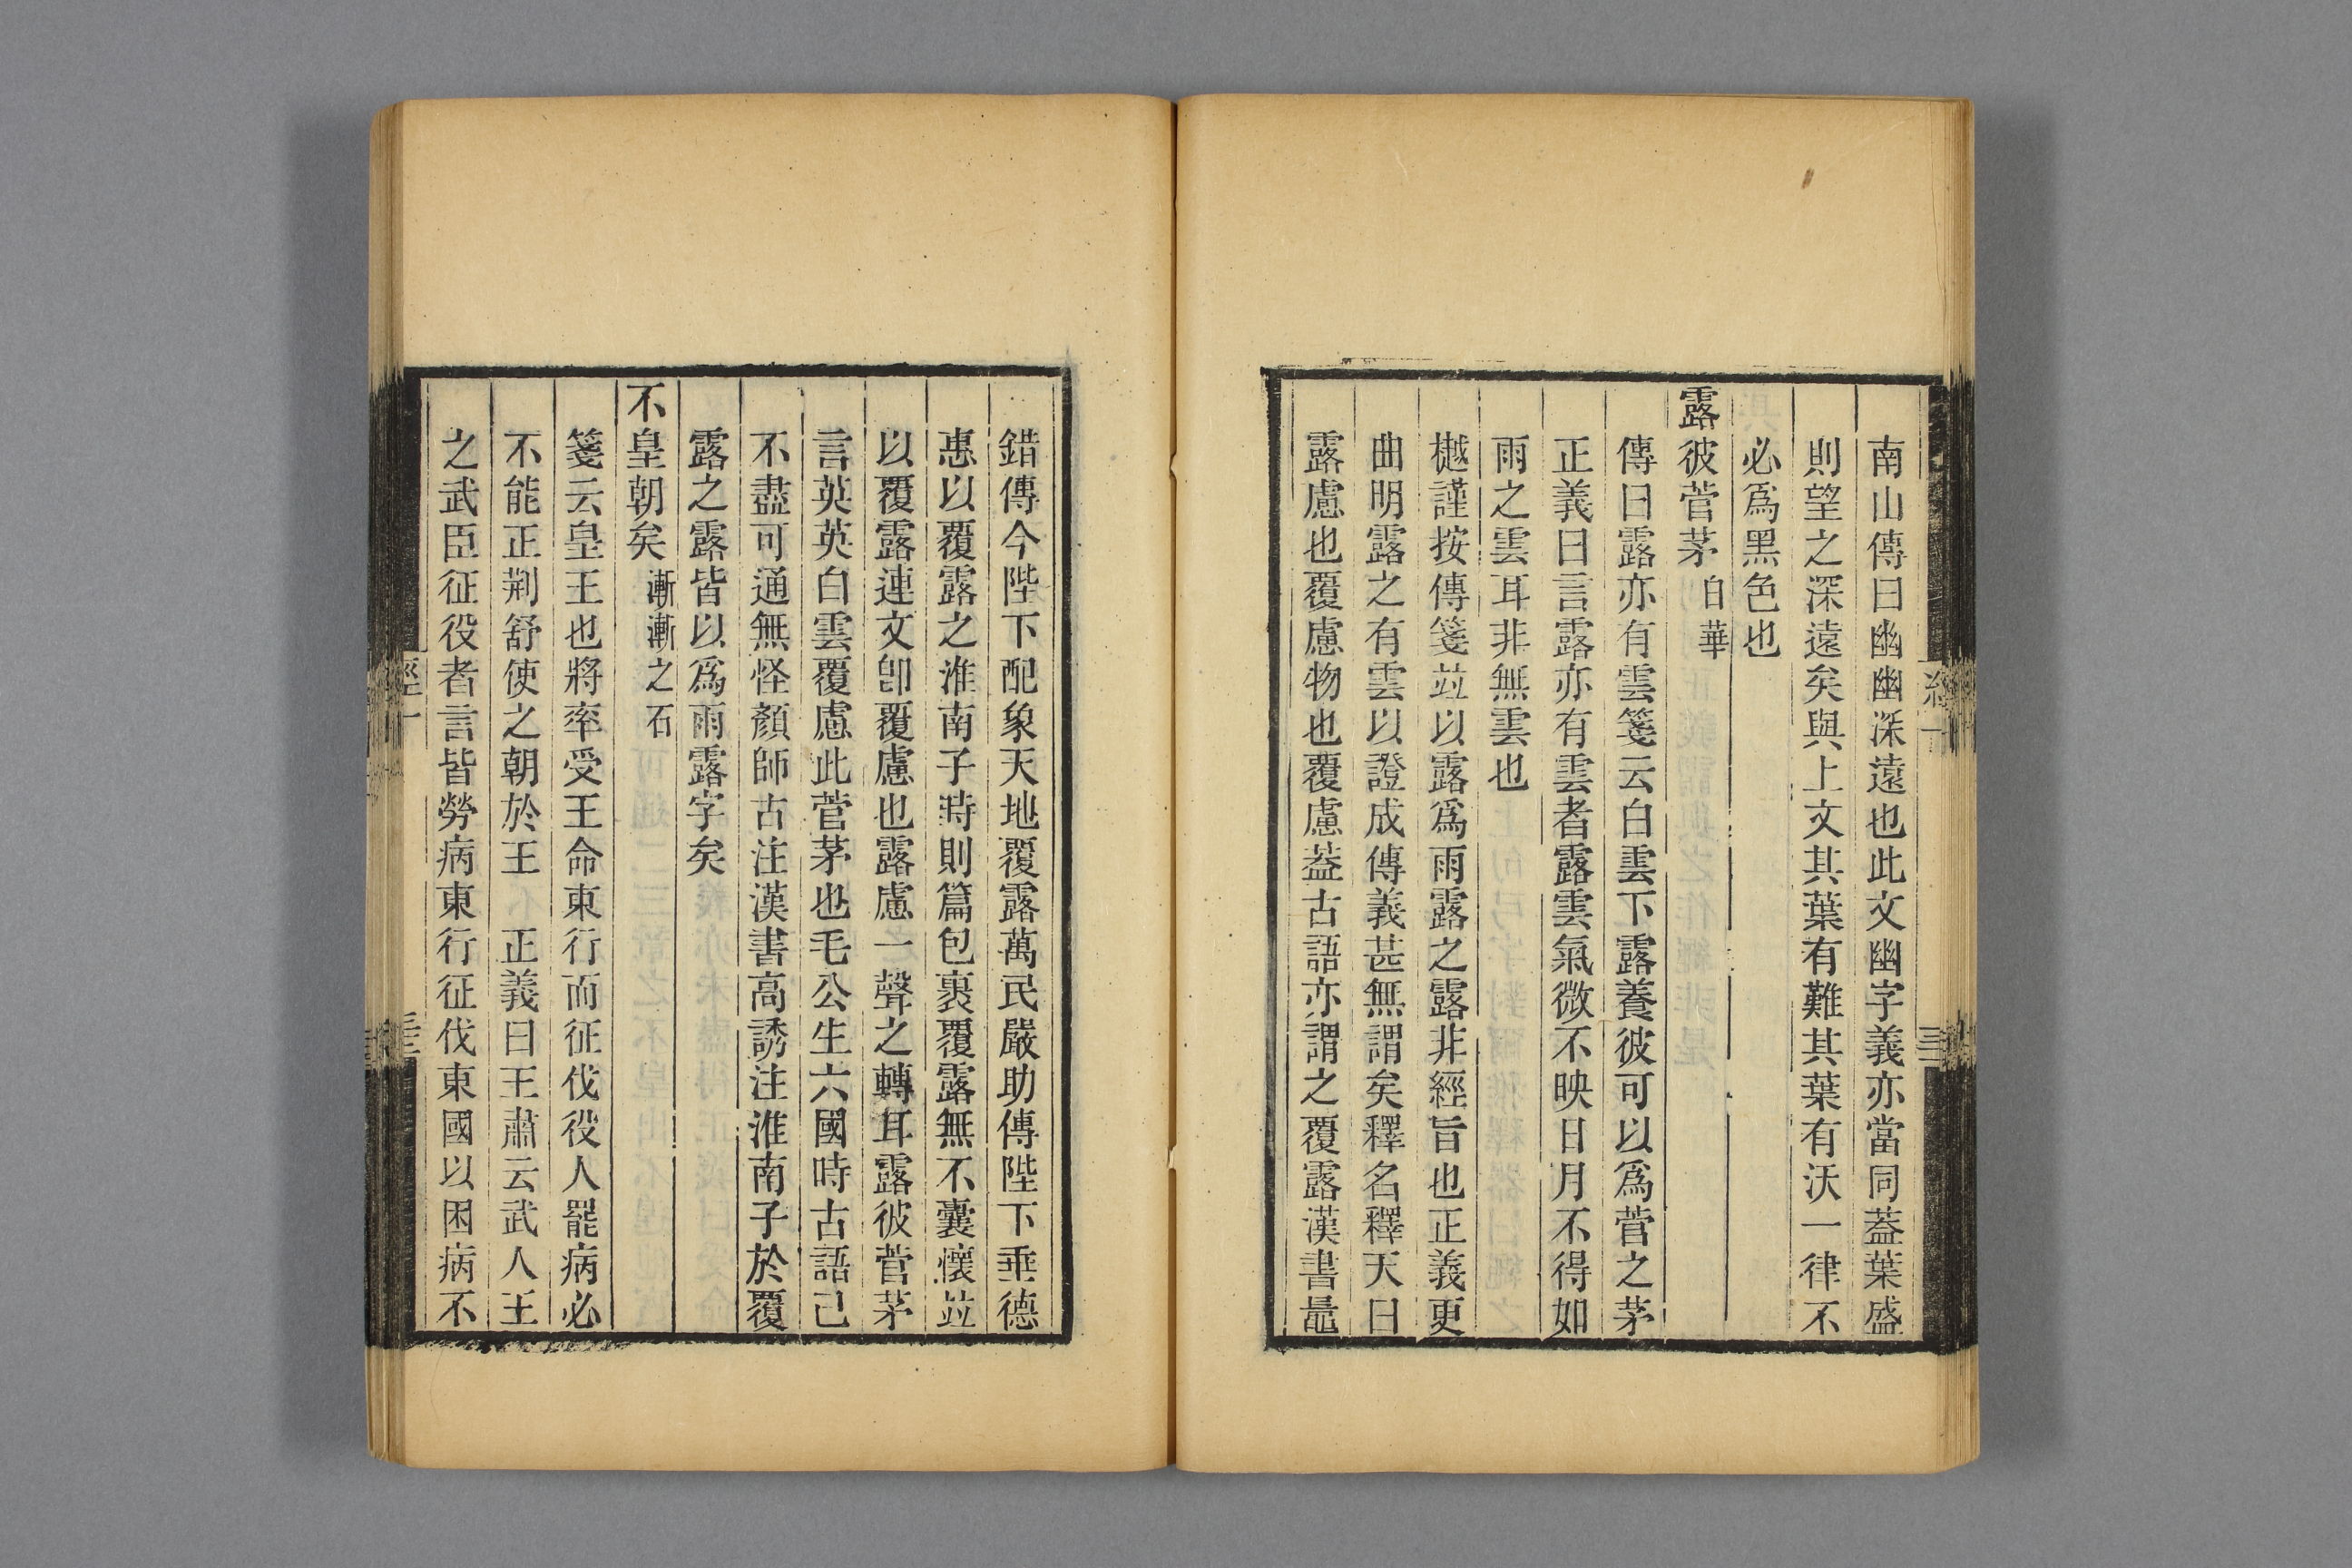 南山傳曰幽幽深遠也此文幽字義亦當同葢葉盛
則望之深遠矣與上文其葉有難其葉有沃一律不
必爲黑色也
露彼菅茅 白華
傳曰露亦有雲箋云白雲下露養彼可以爲菅之茅
正義曰言露亦有雲者露雲氣微不映日月不得如
雨之雲耳非無雲也
樾謹按傳箋竝以露爲雨露之露非經旨也正義更
曲明露之有雲以證成傳義甚無謂矣釋名釋天曰
露慮也覆慮物也覆慮葢古語亦謂之覆露漢書鼂
錯傳今陛下配象天地覆露萬民嚴助傳陛下垂德
惠以覆露之淮南子時則篇包裹覆露無不囊懷竝
以覆露連文卽覆慮也露慮一聲之轉耳露彼菅茅
言英英白雲覆慮此菅茅也毛公生六國時古語已
不盡可通無怪顏師古注漢書高誘注淮南子於覆
露之露皆以爲雨露字矣
不皇朝矣 漸漸之石
箋云皇王也將率受王命東行而征伐役人罷病必
不能正荆舒使之朝於王 正義曰王肅云武人王
之武臣征役者言皆勞病東行征伐東國以困病不